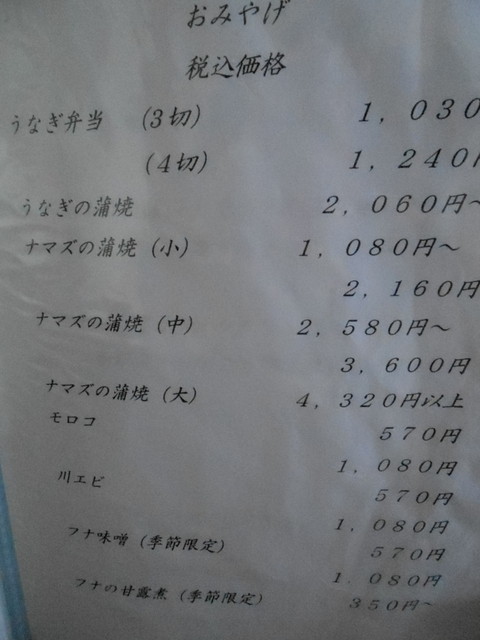 おみやげ
税込価格
うなぎ弁当 (3切) 1,030
(4切) 1,240円
うなぎの蒲焼 2,060円～
ナマズの蒲焼 (小) 1,080円～
2,160円
ナマズの蒲焼 (中) 2,580円～
3,600円
ナマズの蒲焼 (大) 4,320円以上
モロコ 570円
1,080円
川エビ 570円
1,080円
フナ味噌 (季節限定) 570円
1,080円
フナの甘露煮 (季節限定) 350円～